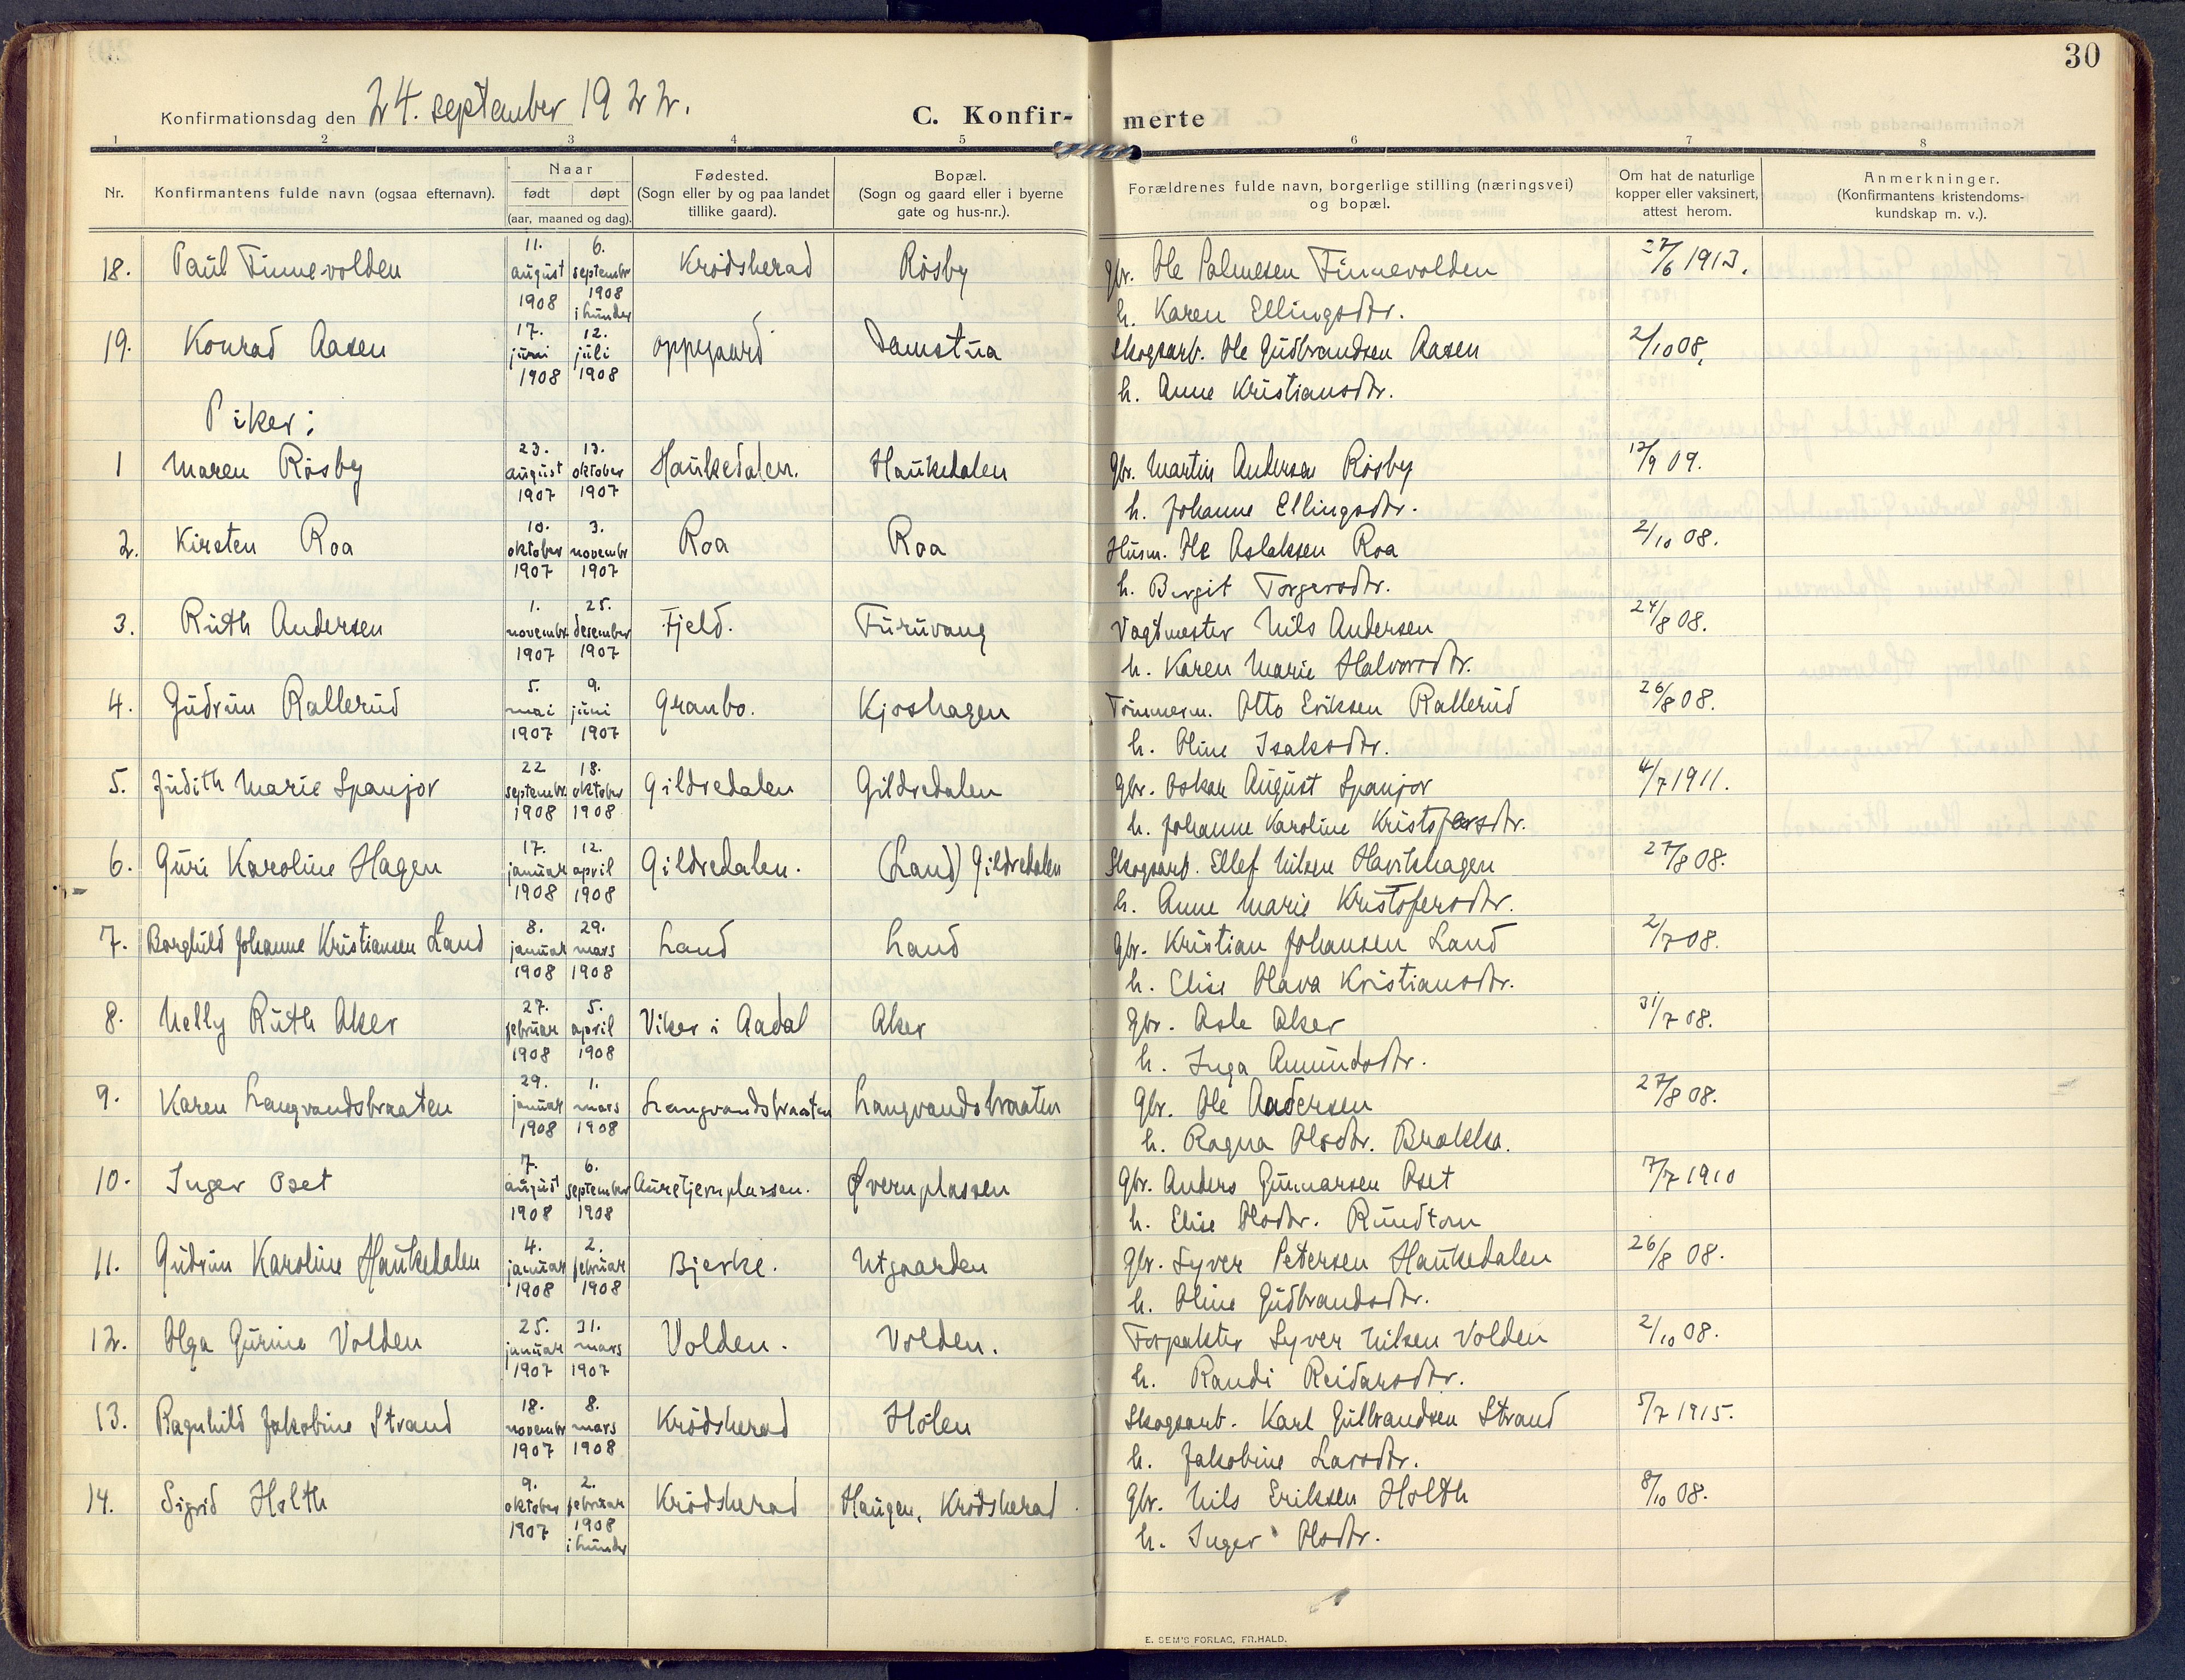 30
Konfirmationsdag den 24. september 1922.
C. Konfir-
merte
1 2 3 4 5 6 7 8
Nr.
Konfirmantens fulde navn (ogsaa efternavn).
Naar
født døpt
(aar, maaned og dag).
Fødested.
(Sogn eller by og paa landet
tillike gaard).
Bopæl.
(Sogn og gaard eller i byerne
gate og hus-nr.).
Forældrenes fulde navn, borgerlige stilling (næringsvei)
og bopæl.
Om hat de naturlige
kopper eller vaksinert,
attest herom.
Anmerkninger.
(Konfirmantens kristendoms-
kundskap m. v.).
18. Paul Finnevolden 11. august 1908 6. septembr 1908 i Lunder Krødsherad Røsby gbr. Ole Palmesen Finnevolden 27/6 1913.
h. Karen Ellingsdtr.
19. Konrad Aasen 17. juni 1908 12. juli 1908 Oppegaard Damstua Skogsarb. Ole Gudbrandsen Aasen 2/10 08.
h. Anne Kristiansdtr.
Piker:
1 Maren Røsby 23. august 1907 13. oktober 1907 Haukedalen. Haukedalen Gbr. Martin Andersen Røsby 17/9 09.
h. Johanne Ellingsdtr.
2. Kirsten Roa 10. oktober 1907 3. novembr 1907 Roa Roa Husm. Ole Aslaksen Roa 2/10 08.
h. Birgit Torgersdtr.
3. Ruth Andersen 1. novembr. 1907 25. desember 1907 Fjeld. Furuvang Vagtmester Nils Andersen 24/8 08.
h. Karen Marie Halvorsdtr.
4. Gudrun Rallerud 5. mai 1907 9. juni 1907 Granbo. Kjoshagen Tømmerm. Otto Eriksen Rallerud 26/8 08.
h. Oline Isaksdtr.
5. Judith Marie Spanjor 22 septembr. 1908 18. oktober 1908 Gildredalen Gildredalen Gbr. Oskar August Spanjor 4/7 1911.
h. Johanne Karoline Kristofersdtr.
6. Guri Karoline Hagen 17. januar 1908 12. april 1908 Gildredalen. (Land) Gildredalen Skogsarb. Ellef Nilsen Havikhagen 27/8 08.
h. Anne Marie Kristofersdtr.
7. Borghild Johanne Kristiansen Land 8. januar 1908 29. mars 1908 Land Land Gbr. Kristian Johansen Land 2/7 08.
h. Elise Olava Kristiansdtr.
8. Nelly Ruth Aker 27. februar 1908 5. april 1908 Viker i Aadal Aker Gbr. Asle Aker 31/7 08.
h. Inga Amundsdtr.
9. Karen Langvandsbraaten 29. januar 1908 1. mars 1908 Langvandsbraaten Langvandsbraaten Gbr. Ole Andersen 27/8 08.
h. Ragna Olsdtr. Brakka.
10. Inger Oset 7. august 1908 6. september 1908 Auretjernplassen. Øvernplassen Gbr. Anders Gunnarsen Oset 7/7 1910
h. Elise Olsdtr. Rundtom
11. Gudrun Karoline Haukedalen 4. januar 1908 2. februar 1908 Bjerke. Utgaarden Gbr. Syver Petersen Haukedalen 26/8 08.
h. Oline Gudbrandsdtr.
12. Olga Gurine Volden 25. januar 1907 31. mars 1907 Volden. Volden. Forpakter Syver Nilsen Volden 2/10 08.
h. Randi Reidarsdtr.
13. Ragnhild Jakobine Strand 18. novembr 1907 8. mars 1908 Krødsherad Holen Skogsarb. Karl Gulbrandsen Strand 5/7 1915.
h. Jakobine Larsdtr.
14. Sigrid Holth 9. oktober 1907 2. februar 1908 i Lunder Krødsherad Haugen, Krødsherad Gbr. Nils Eriksen Holth 8/10 08.
h. Inger Olsdtr.
E. SEM'S FORLAG, FR.HALD.